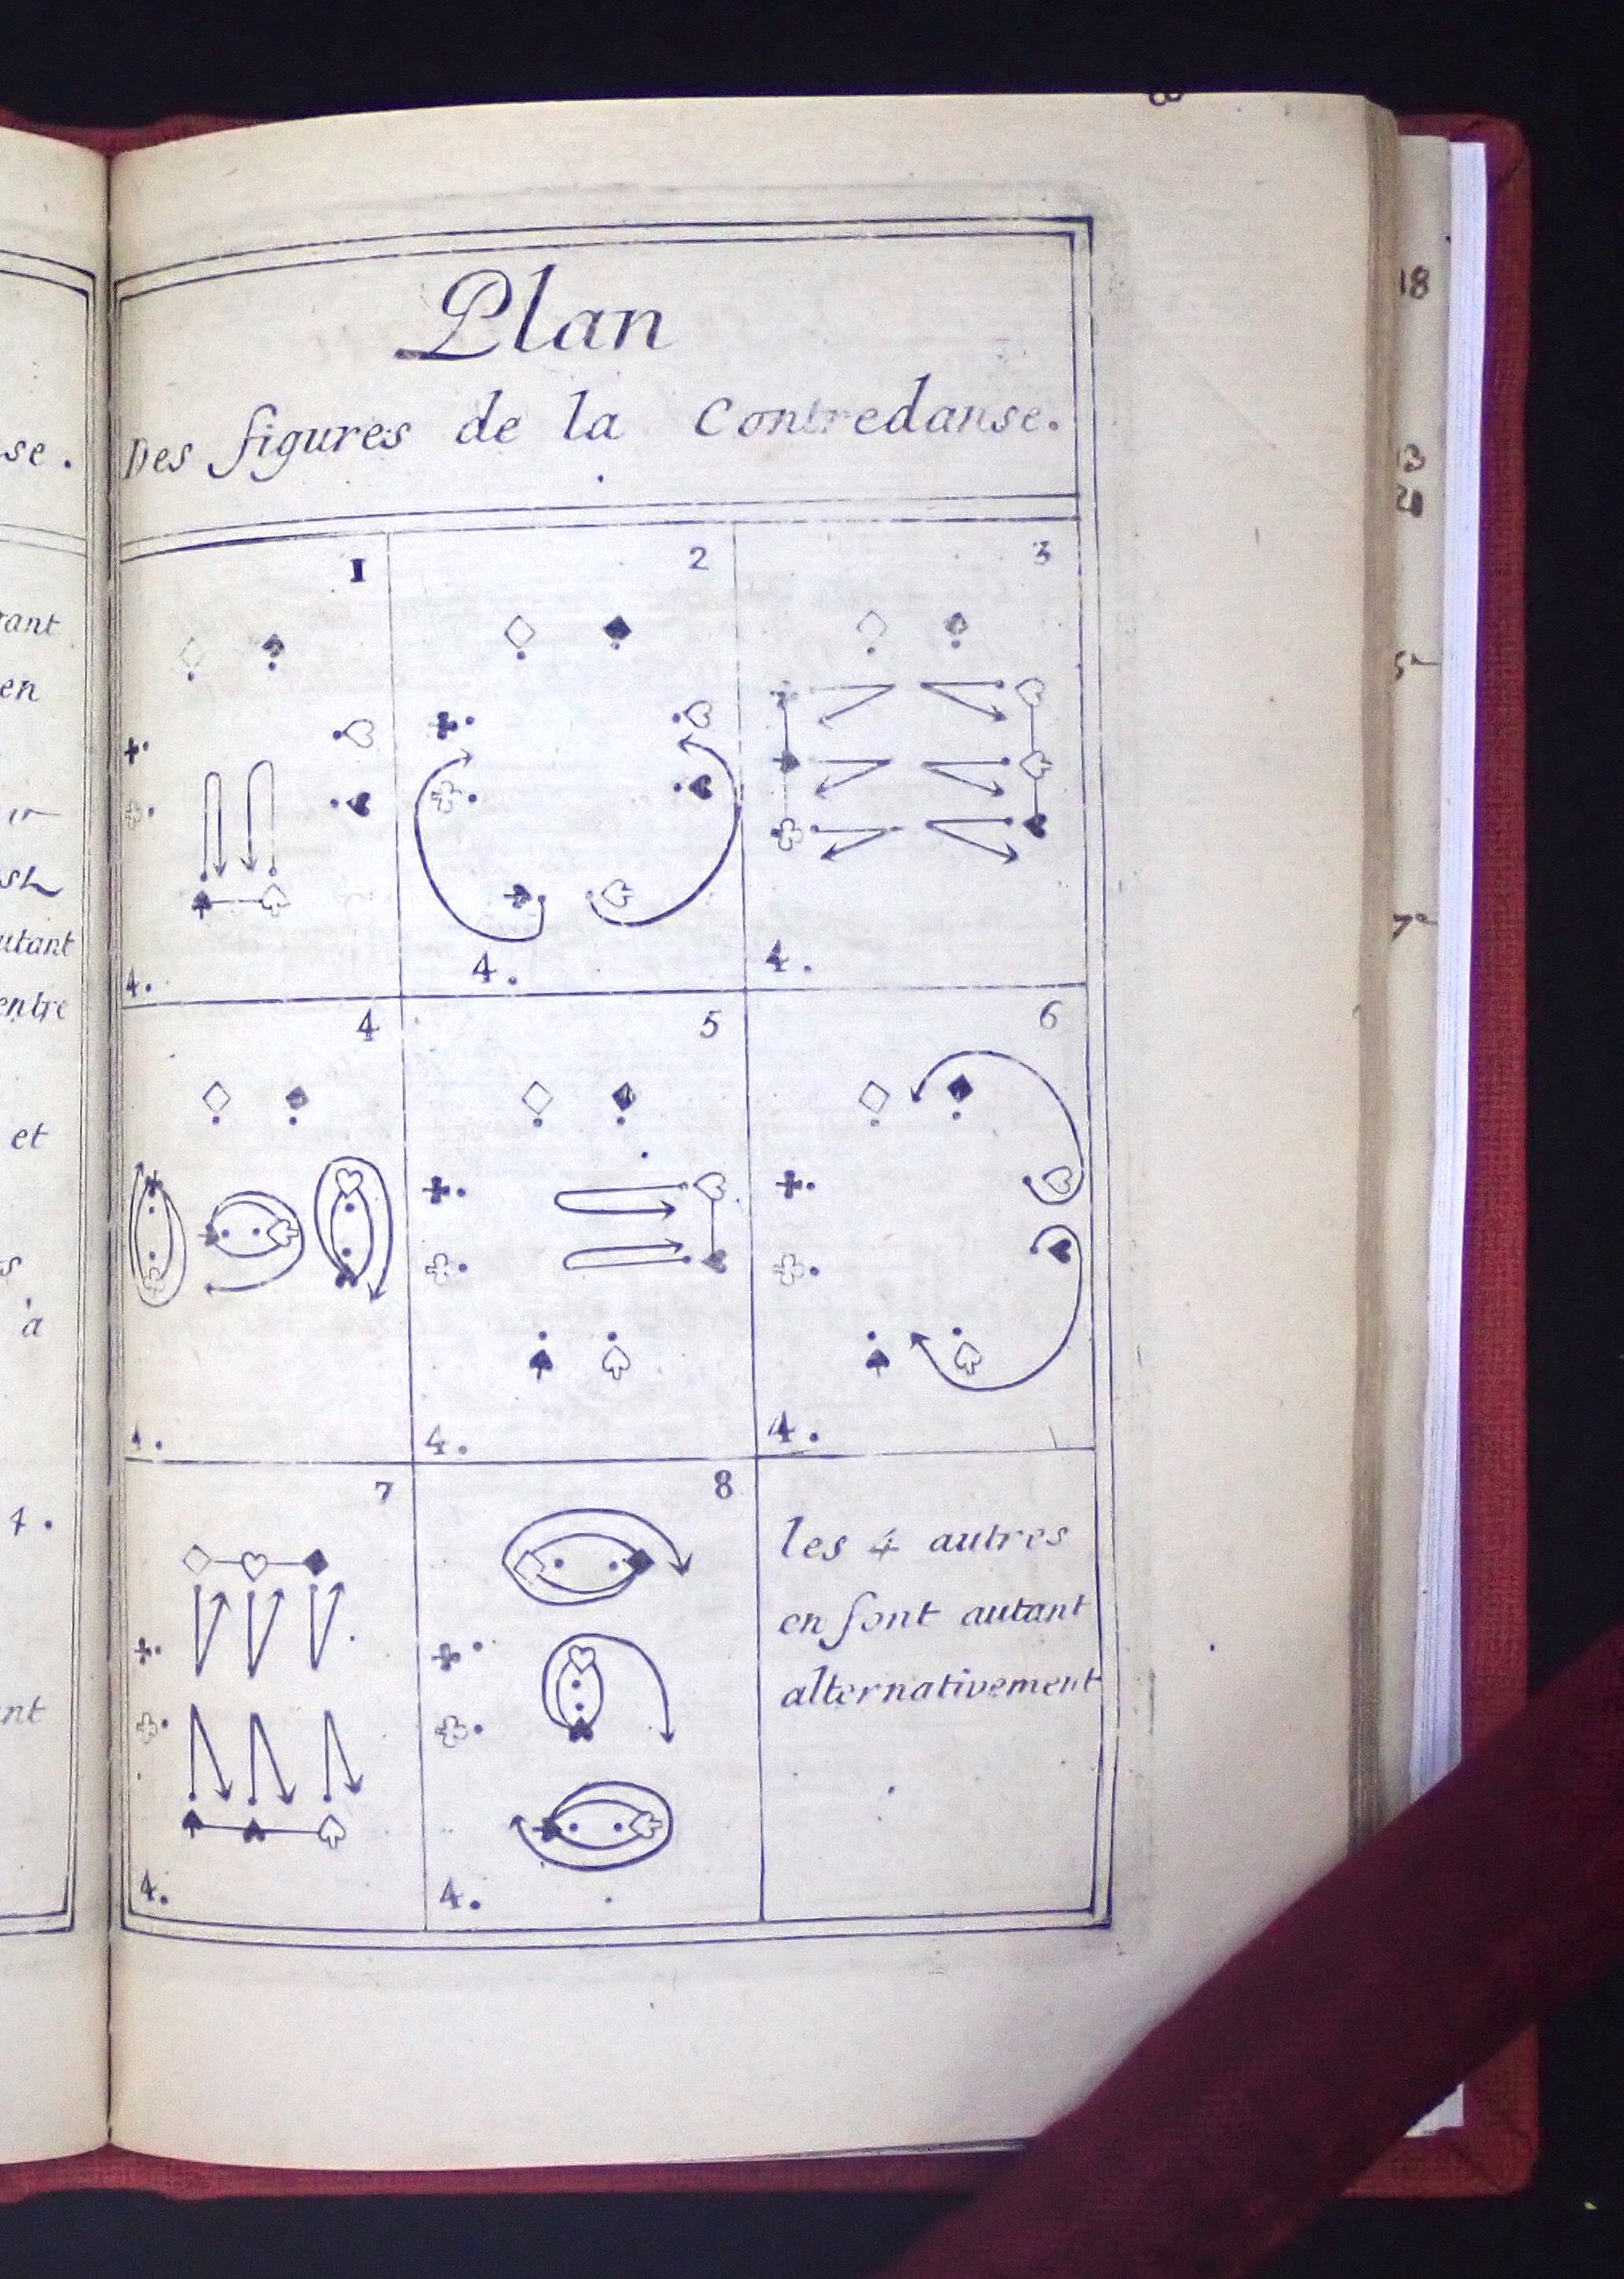 se.
rant
en
utant
entre
et
à
4.
nt
Plan
Des figures de la Contredanse.
1
2
3
4.
4.
4.
4
5
6
4.
4.
4.
7
8
les 4 autres
en font autant
alternativement
4.
4.
18
13
21
5e
7e